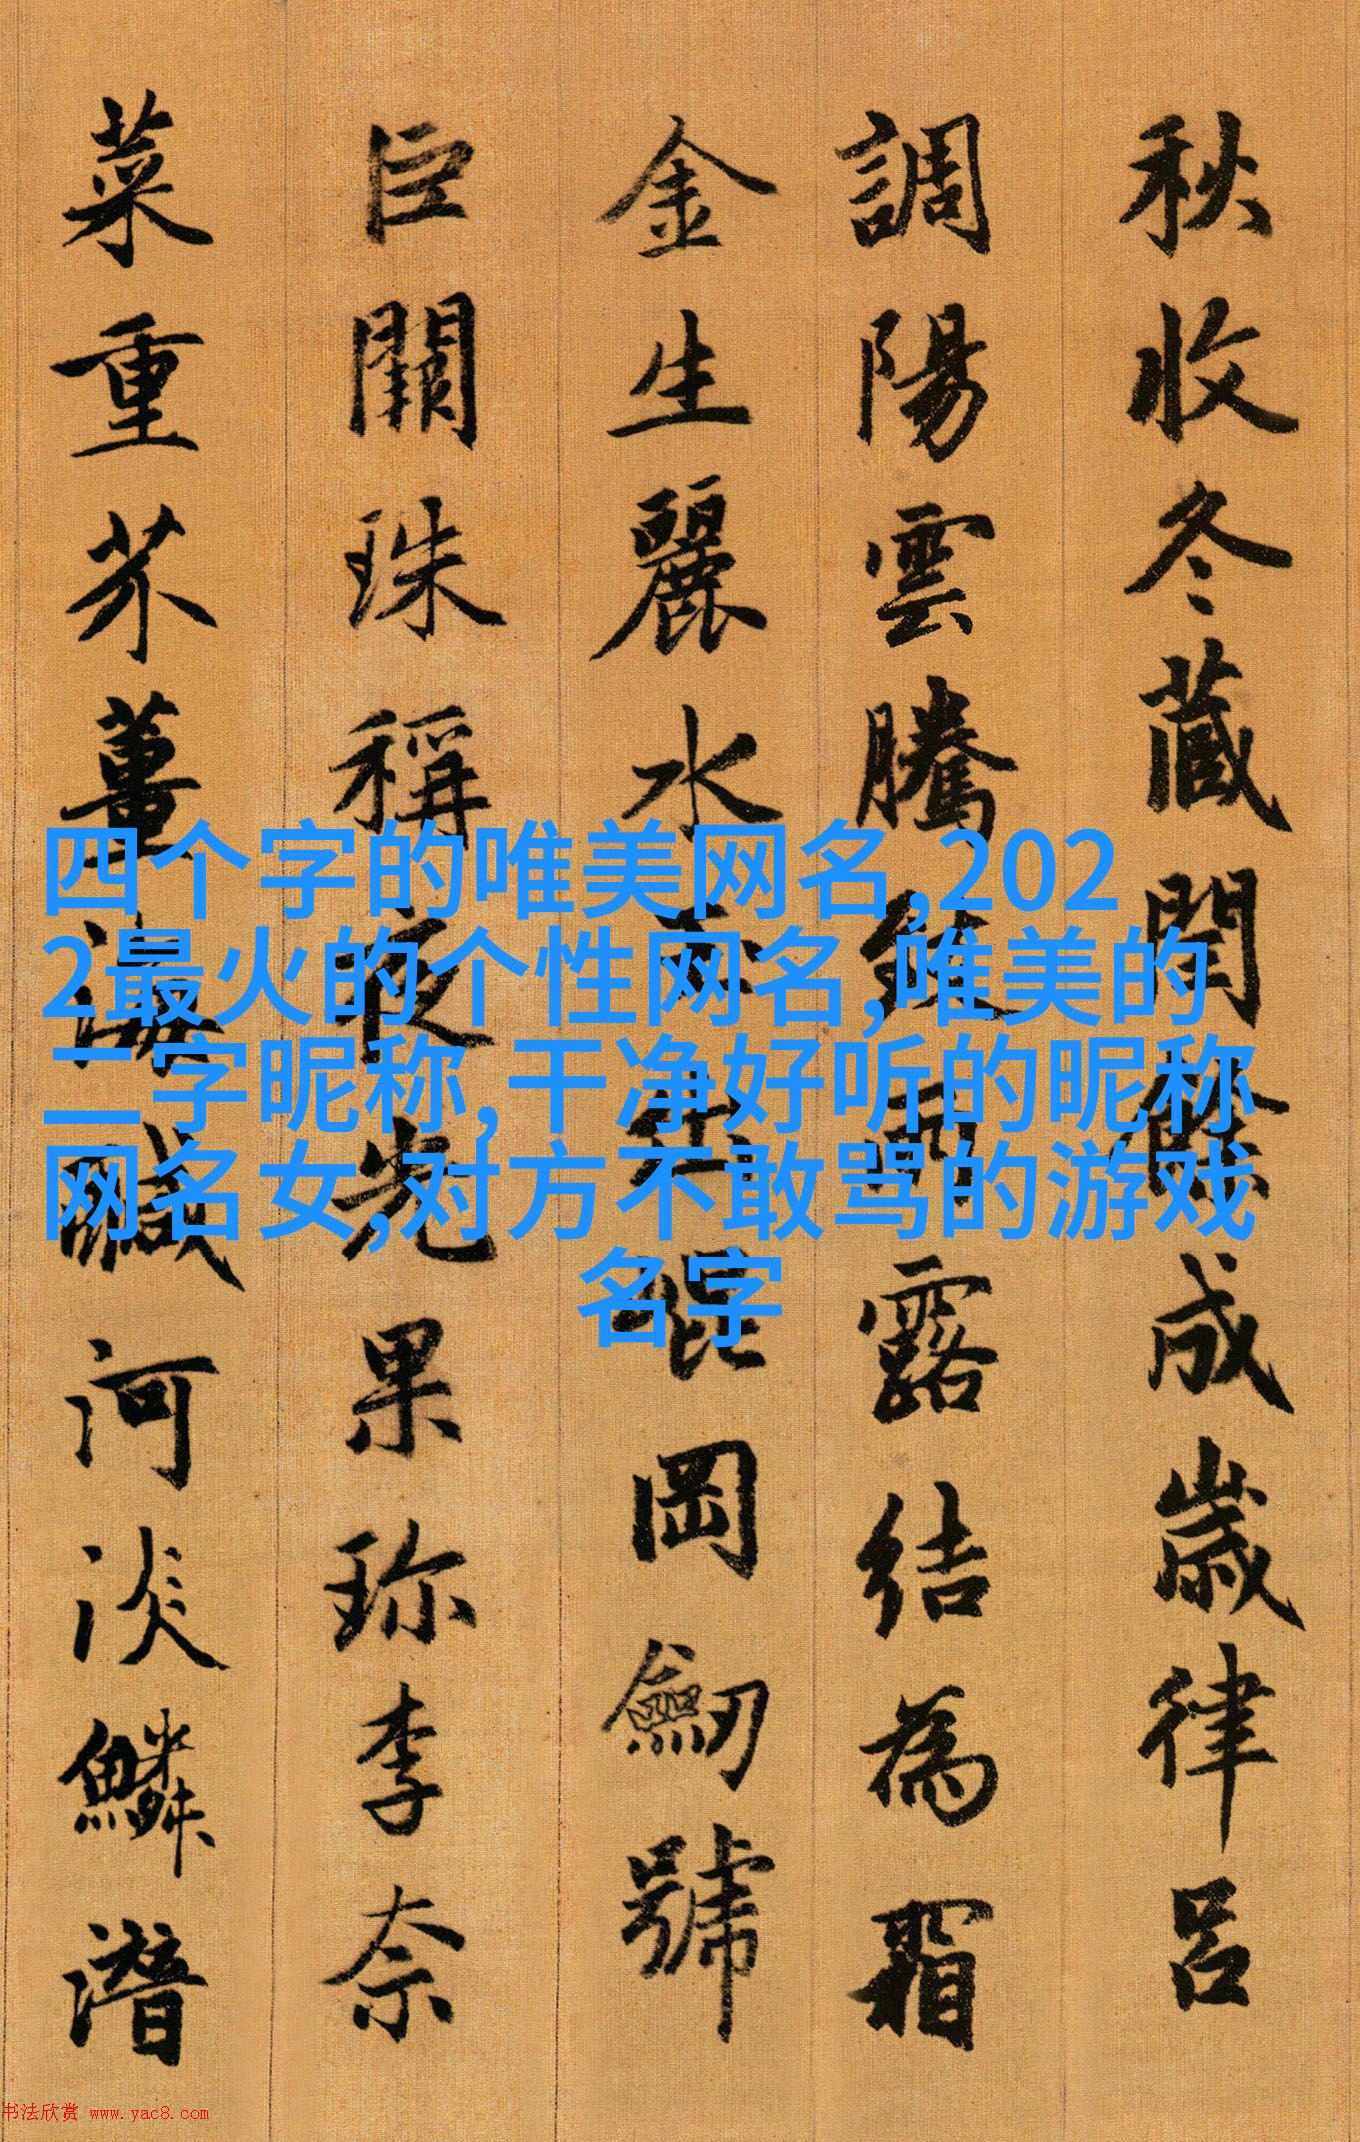 秋收冬藏閏餘成歲律呂
調陽雲騰致雨露結為霜
金生麗水玉出崐岡劒號
巨闕珠稱夜光果珍李奈
菜重芥薑海鹹河淡鱗潛
四个字的唯美网名,202
2最火的个性网名,唯美的
二字昵称,干净好听的昵称
网名女,对方不敢骂的游戏
名字
书法欣赏 www.yac8.com